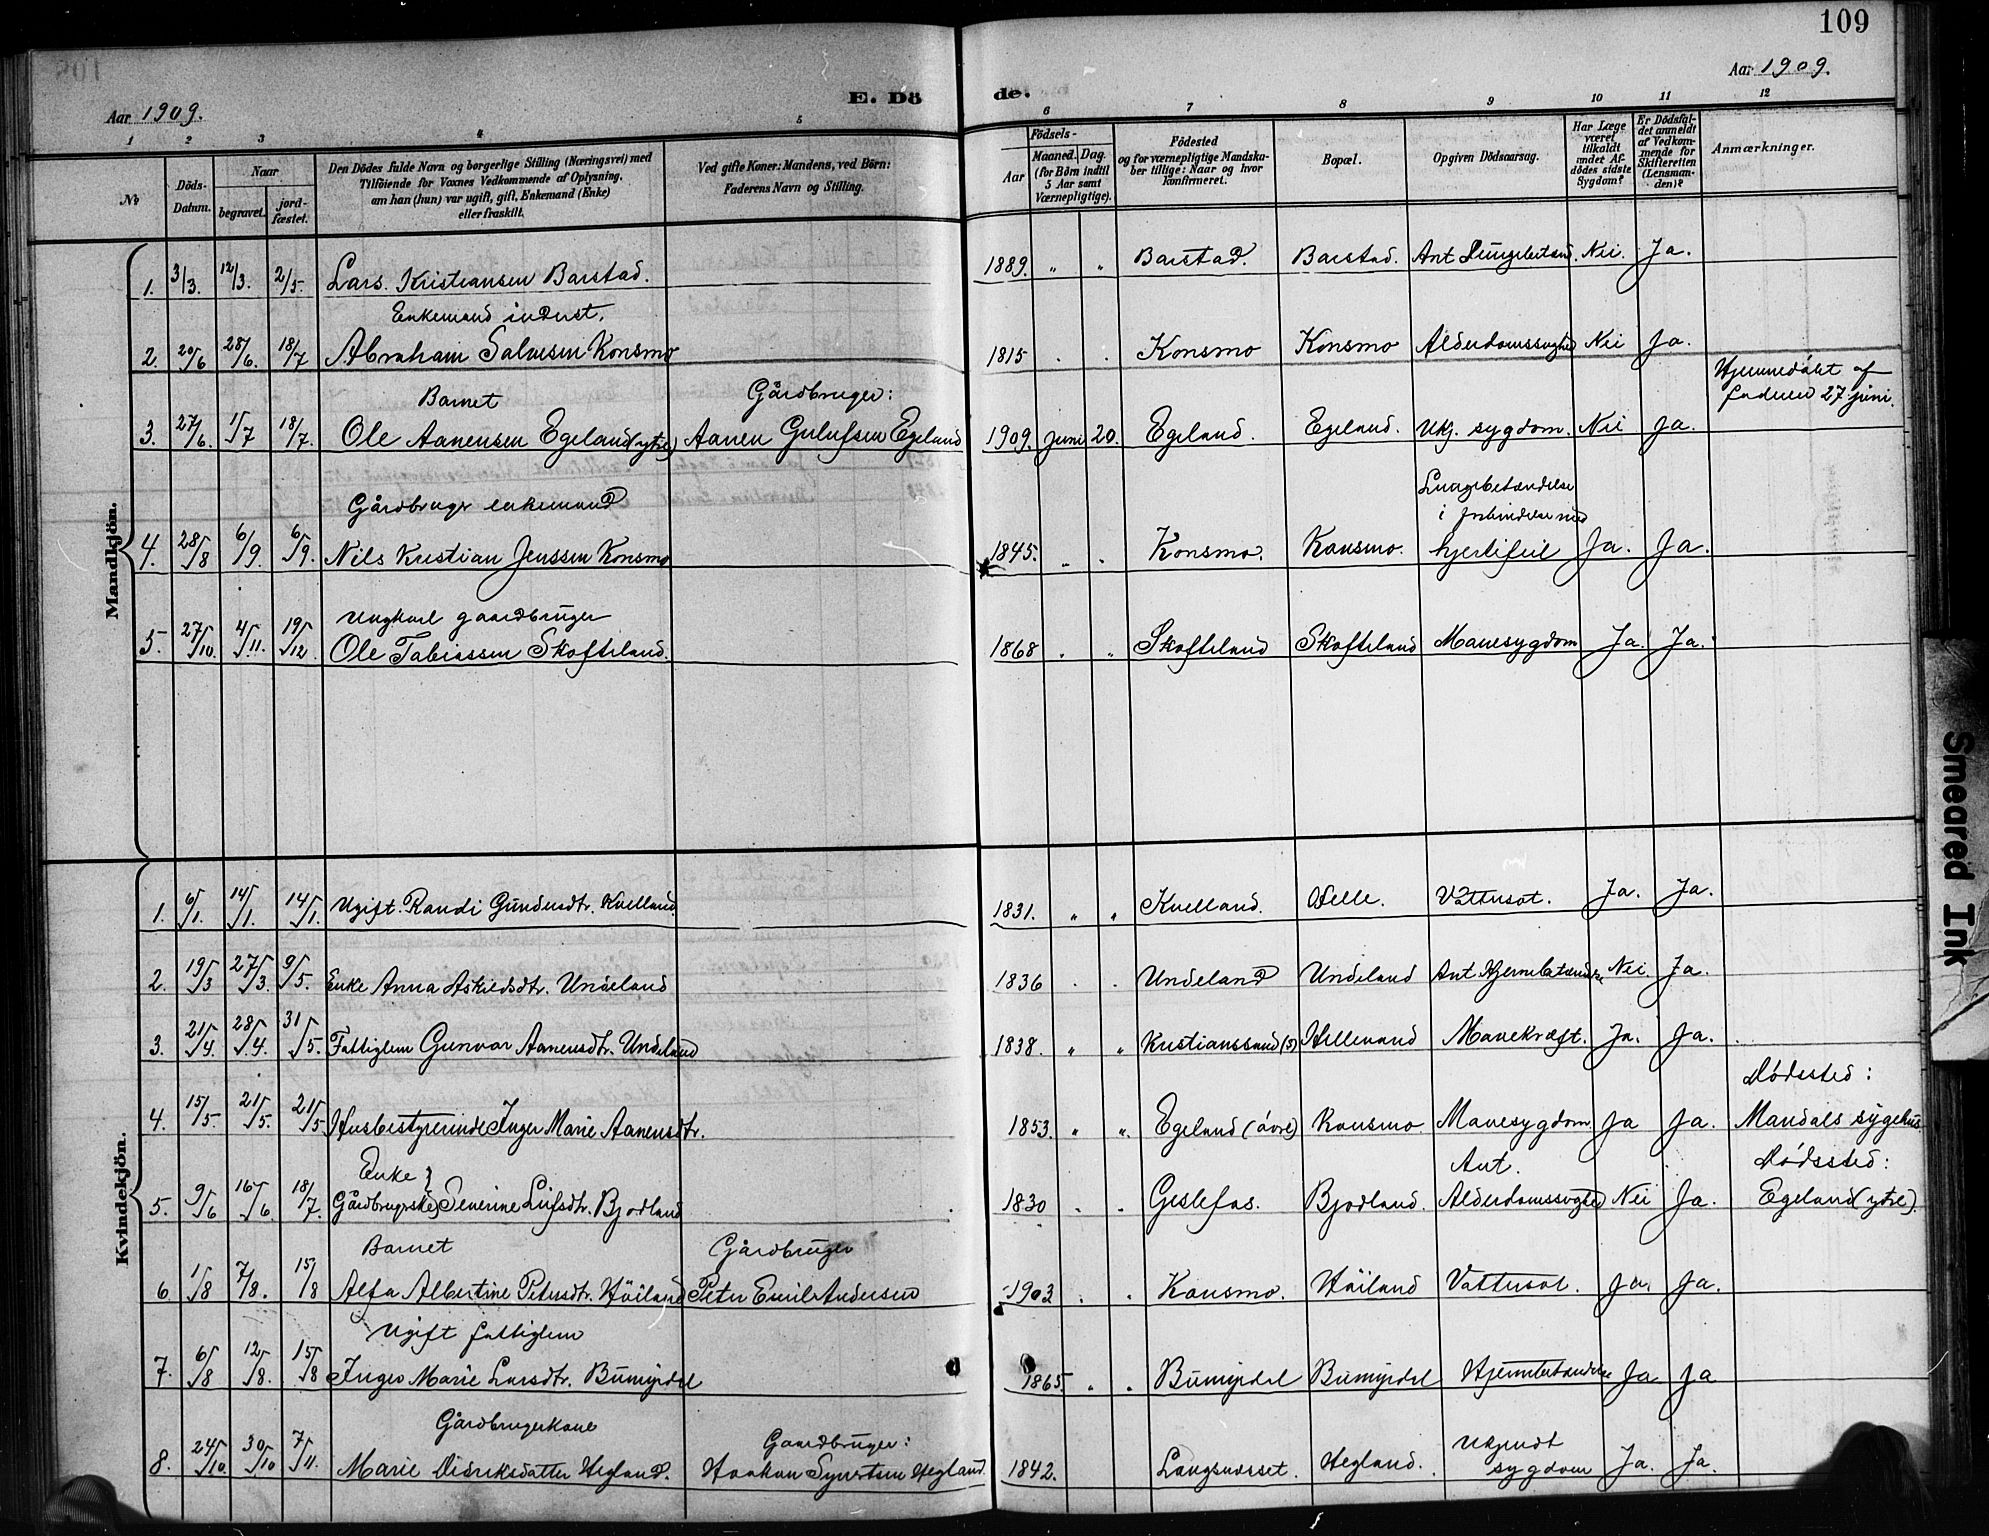 109
Aar 1909.
E. Dö de.
Aar 1909.
1 2 3 4 5 6 7 8 9 10 11 12
No
Döds-Datum.
Naar
begravet.
jord-fæstet.
Den Dödes fulde Navn og borgerlige Stilling (Næringsvei) med
Tilföiende for Voxnes Vedkommende af Oplysning,
om han (hun) var ugift, gift, Enkemand (Enke)
eller fraskilt.
Ved gifte Koner: Mandens, ved Börn:
Faderens Navn og Stilling.
Födsels-
Aar
Maaned. Dag.
(for Börn indtil
5 Aar samt
Værnepligtige).
Födested
og for værnepligtige Mandska-
ber tillige: Naar og hvor
konfirmeret.
Bopæl.
Opgiven Dödsaarsag.
Har Læge
været
tilkaldt
under Af-
dödes sidste
Sygdom?
Er Dödsfal-
det anmeldt
af Vedkom-
mende for
Skifteretten
(Lensman-
den)?
Anmærkninger.
Mandkjön.
1. 3/3. 12/3. 2/5. Lars Kristiansen Barstad. 1889. " " Barstad. Barstad. Ant Lungebetænd. Nei. Ja.
Enkemand inderst.
2. 20/6 28/6. 18/7 Abraham Salvesen Konsmo 1815 . . Konsmo Konsmo Alderdomssvaghed Nei Ja.
Barnet Gårdbruger: Hjemmedöbt af
faderen 27 juni.
3. 27/6. 1/7 18/7. Ole Aanensen Egeland (ytre) Aanen Gulufsen Egeland 1909. juni 20. Egeland. Egeland. Ukj. sygdom. Nei Ja.
Gårdbruger enkemand Lungebetændelse
i forbindelse med
4. 28/8 6/9 6/9. Nils Kristian Jenssen Konsmo 1845. " . Konsmo. Konsmo. hjertefeil Ja. Ja.
Ungkarl gaardbruger
5. 27/10. 4/11. 19/12 Ole Tobiassen Skofteland. 1868 " " Skofteland Skofteland Mavesygdom Ja. Ja.
Kvindekjön.
1. 6/1. 14/1. 14/1. Ugift. Randi Gundersdtr. Kvelland. 1831. " " Kvelland. Helle. Vattersot. Ja. Ja.
2. 19/3 27/3. 9/5. Enke Anna Askieldsdtr. Undeland 1836 . . Undeland Undeland Ant Hjernebetændelse Nei. Ja.
3. 21/4. 28/4. 31/5. Fattiglem Gunvor Aanensdtr. Undeland 1838. " " Kristianssand (S) Hellevand Mavekræft. Ja. Ja.
Dödssted:
4. 15/5. 21/5. 21/5 Husbestyrerinde Inger Marie Aanensdtr. 1853. " ". Egeland (övre) Konsmo. Mavesygdom Ja Ja. Mandals sygehus
Enke Ant. Dödssted:
5. 9/6 16/6. 18/7. Gårdbrugerske Severine Leifsdtr. Bjodland 1830 . . Geslefos. Bjodland. Alderdomssvaghed Nei Ja. Egeland (ytre).
Barnet Gårdbruger
6 1/8 7/8. 15/8 Alfa Albertine Petersdtr. Höiland Peter Emil Andersen 1903 . . Konsmo. Höiland Vattersot. Ja. Ja.
Ugift fattiglem
7. 6/8 12/8. 15/8 Inger Marie Larsdtr. Bumyrdal 1865. " . Bumyrdal Bumyrdal Hjernebetændelse Ja Ja
Gårdbrugerkone Gaardbruger: Ukjendt
8. 24/10. 30/10 7/11. Marie Didriksdatter Hegland. Haakon Syvertsen Hegland. 1842. Langsnoset. Hegland. sygdom Ja. Ja.
Smeared Ink